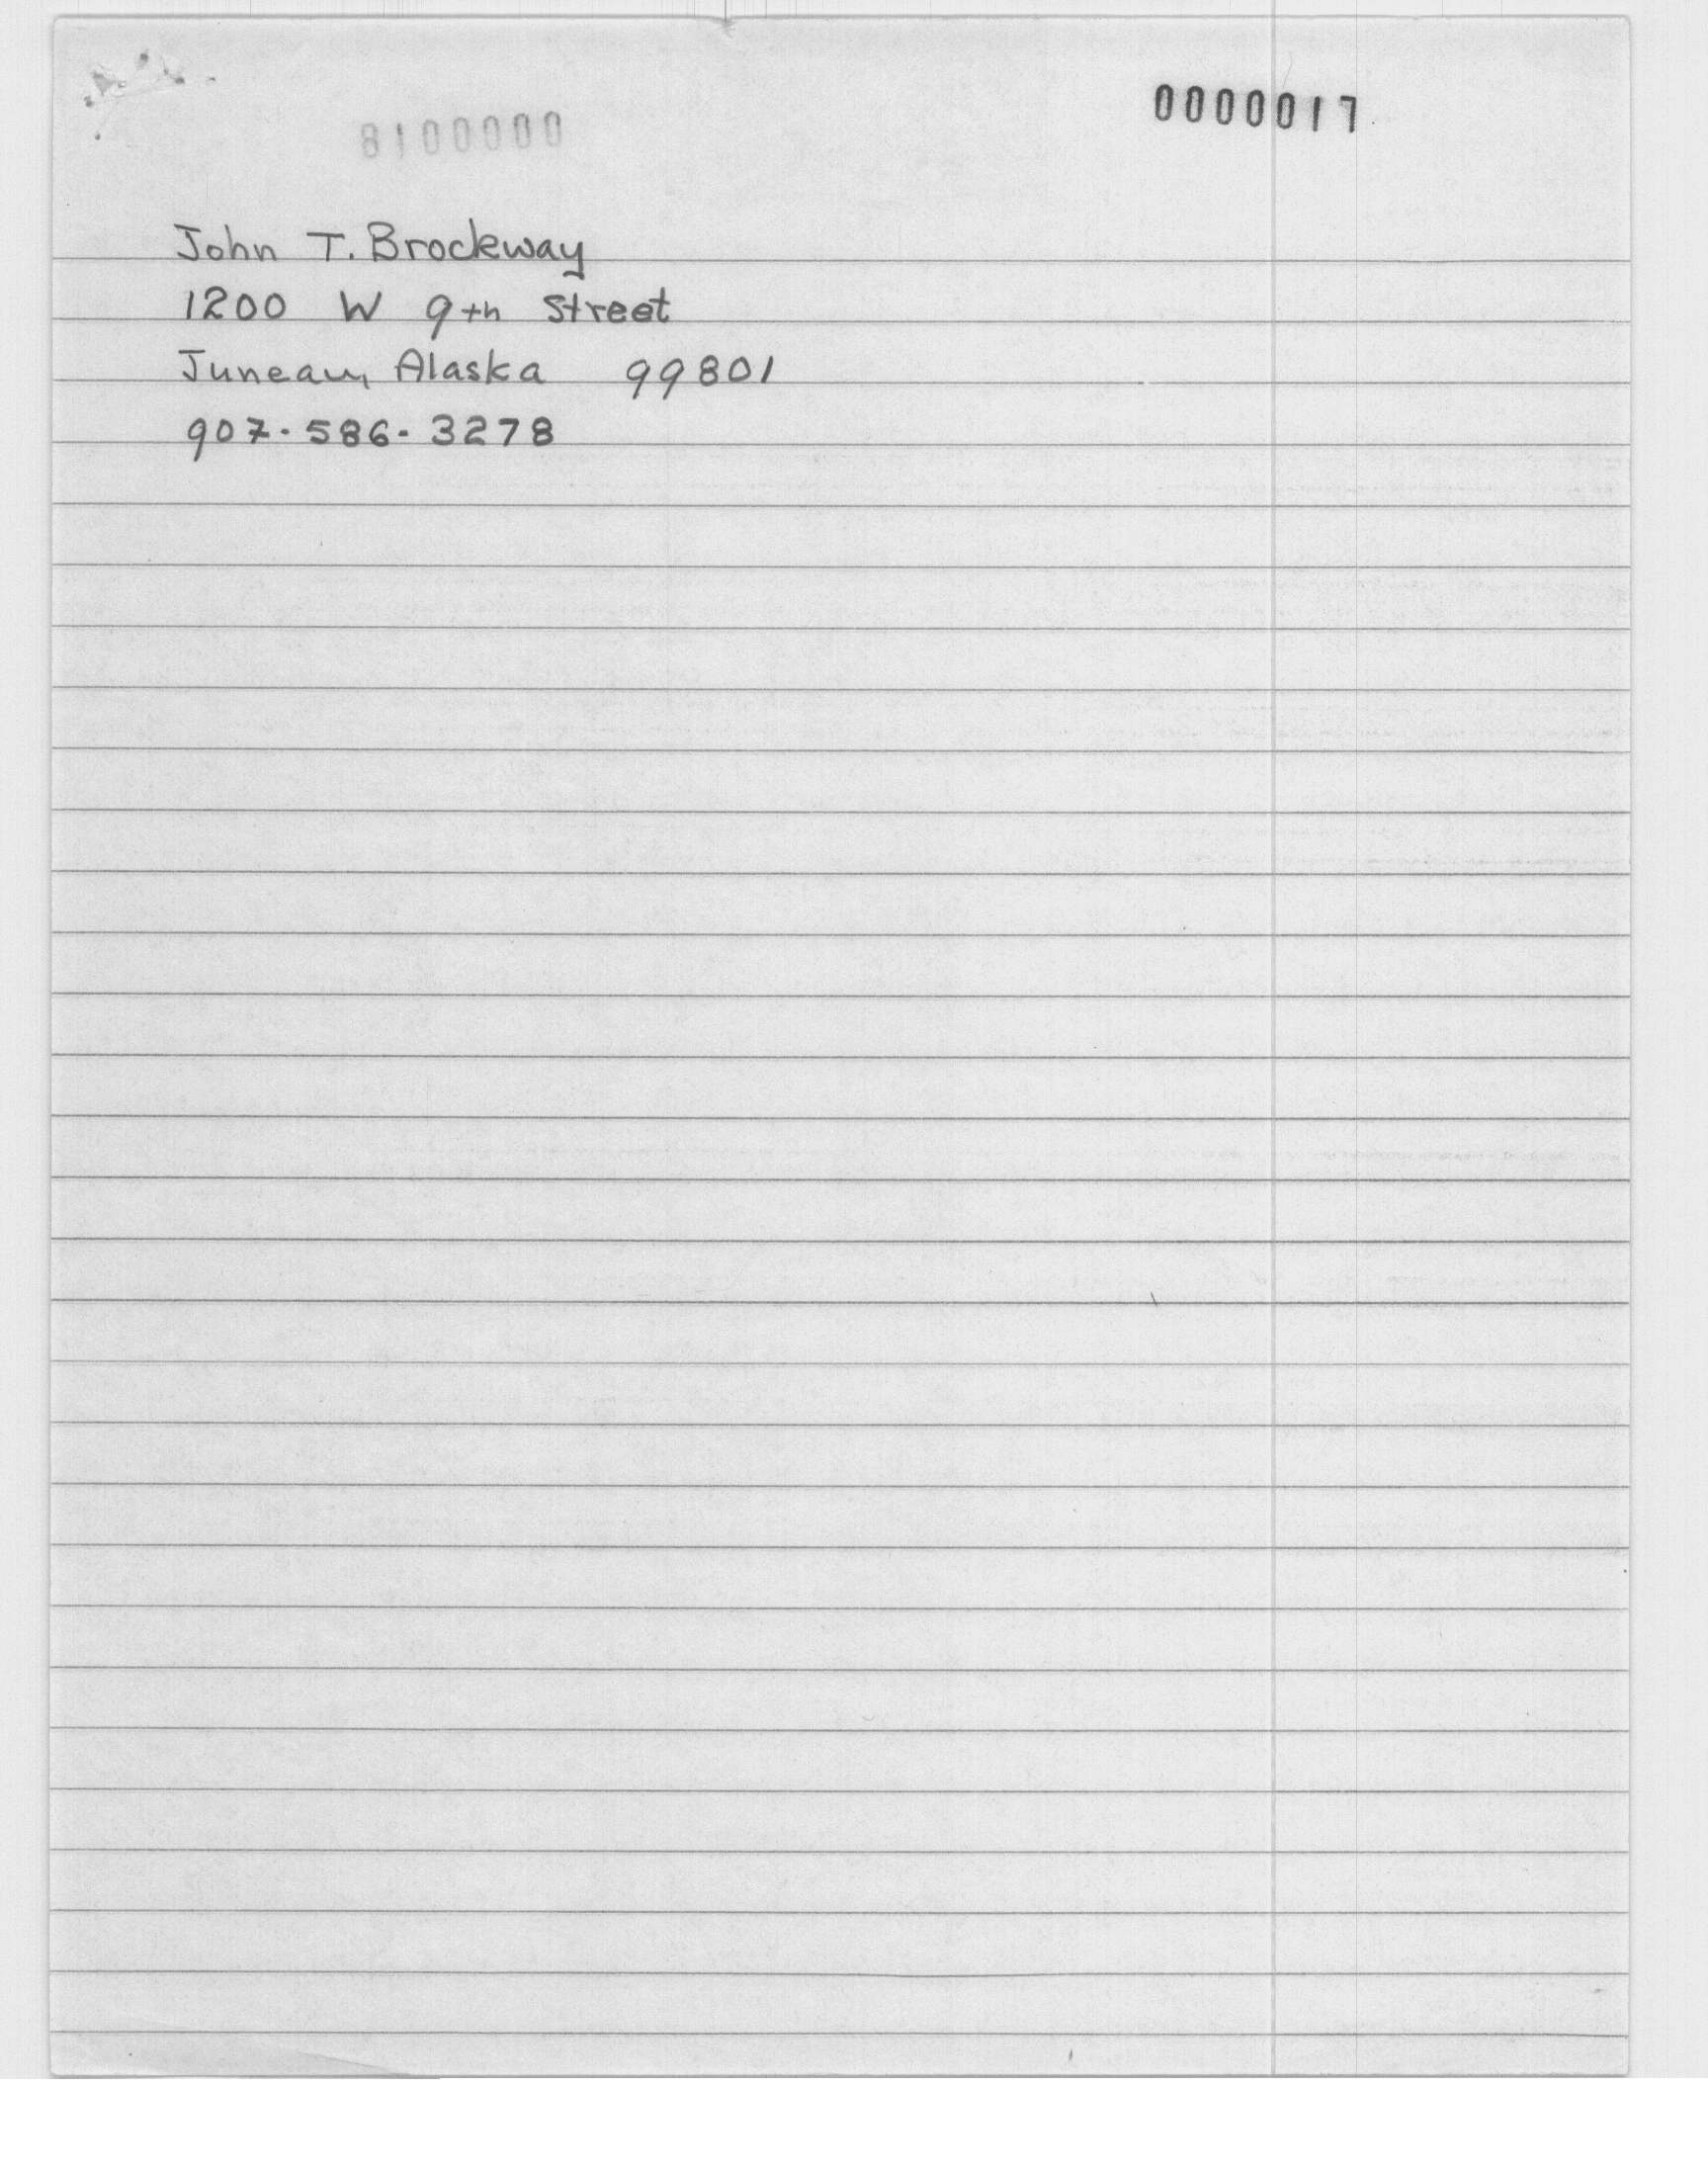 0000017
8100000
John T. Brockway
1200 W 9th Street
Juneau, Alaska 99801
907-586-3278